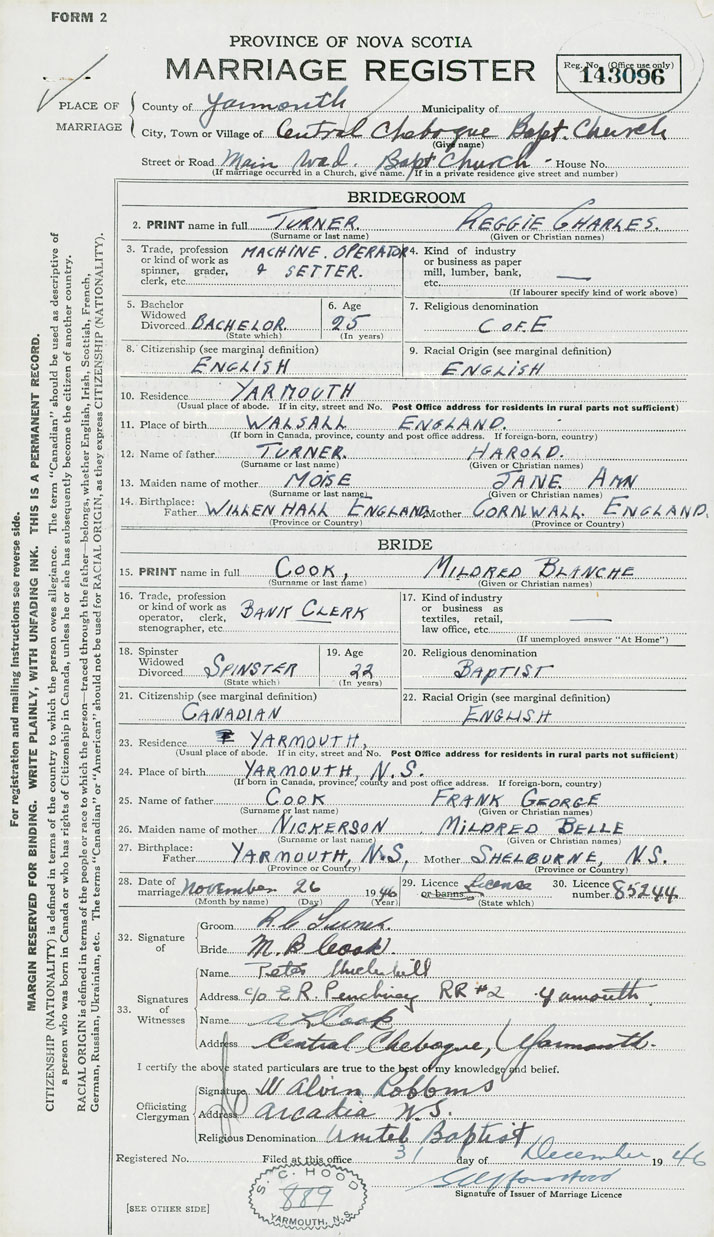 FORM 2
PROVINCE OF NOVA SCOTIA
MARRIAGE REGISTER
Reg. No. (Office use only)
143096
PLACE OF MARRIAGE
County of Yarmouth Municipality of
City, Town or Village of Central Chebogue Bapt. Church
(Give name)
Street or Road Main road. Bapt Church - House No.
(If marriage occurred in a Church, give name. If in a private residence give street and number)
BRIDEGROOM
2. PRINT name in full TURNER. REGGIE CHARLES.
(Surname or last name) (Given or Christian names)
3. Trade, profession or kind of work as spinner, grader, clerk, etc. MACHINE. OPERATOR & SETTER.
4. Kind of industry or business as paper mill, lumber, bank, etc. —
(If labourer specify kind of work above)
5. Bachelor Widowed Divorced BACHELOR. (State which)
6. Age 25 (In years)
7. Religious denomination C of E
8. Citizenship (see marginal definition) ENGLISH
9. Racial Origin (see marginal definition) ENGLISH
10. Residence YARMOUTH
(Usual place of abode. If in city, street and No. Post Office address for residents in rural parts not sufficient)
11. Place of birth WALSALL ENGLAND.
(If born in Canada, province, county and post office address. If foreign-born, country)
12. Name of father TURNER. HAROLD.
(Surname or last name) (Given or Christian names)
13. Maiden name of mother MOISE JANE ANN
(Surname or last name) (Given or Christian names)
14. Birthplace: Father WILLEN HALL ENGLAND. Mother CORNWALL. ENGLAND.
(Province or Country) (Province or Country)
BRIDE
15. PRINT name in full COOK, MILDRED BLANCHE
(Surname or last name) (Given or Christian names)
16. Trade, profession or kind of work as operator, clerk, stenographer, etc. BANK CLERK
17. Kind of industry or business as textiles, retail, law office, etc. —
(If unemployed answer "At Home")
18. Spinster Widowed Divorced SPINSTER (State which)
19. Age 22 (In years)
20. Religious denomination BAPTIST
21. Citizenship (see marginal definition) CANADIAN
22. Racial Origin (see marginal definition) ENGLISH
23. Residence YARMOUTH,
(Usual place of abode. If in city, street and No. Post Office address for residents in rural parts not sufficient)
24. Place of birth YARMOUTH, N.S.
(If born in Canada, province, county and post office address. If foreign-born, country)
25. Name of father COOK FRANK GEORGE
(Surname or last name) (Given or Christian names)
26. Maiden name of mother NICKERSON MILDRED BELLE
(Surname or last name) (Given or Christian names)
27. Birthplace: Father YARMOUTH, N.S, Mother SHELBURNE, N.S.
(Province or Country) (Province or Country)
28. Date of marriage November 26 1946
(Month by name) (Day) (Year)
29. Licence or banns License (State which)
30. Licence number 85244
32. Signature of
Groom R. C Turner
Bride M. B Cook
33. Signatures of Witnesses
Name Peter
Address c/o E.R. RR #2 Yarmouth
Name A L Cook
Address Central Chebogue, Yarmouth.
I certify the above stated particulars are true to the best of my knowledge and belief.
Officiating Clergyman
Signature W Alvin Robbins
Address Arcadia N.S.
Religious Denomination United Baptist
Registered No. Filed at this office 31 day of December 1946
Signature of Issuer of Marriage Licence
S. C. HOOD
889
YARMOUTH, N.S.
[SEE OTHER SIDE]
For registration and mailing instructions see reverse side.
MARGIN RESERVED FOR BINDING. WRITE PLAINLY, WITH UNFADING INK. THIS IS A PERMANENT RECORD.
CITIZENSHIP (NATIONALITY) is defined in terms of the country to which the person owes allegiance. The term "Canadian" should be used as descriptive of
a person who was born in Canada or who has rights of Citizenship in Canada, unless he or she has subsequently become the citizen of another country.
RACIAL ORIGIN is defined in terms of the people or race to which the person—traced through the father—belongs, whether English, Irish, Scottish, French,
German, Russian, Ukrainian, etc. The terms "Canadian" or "American" should not be used for RACIAL ORIGIN, as they express CITIZENSHIP (NATIONALITY).